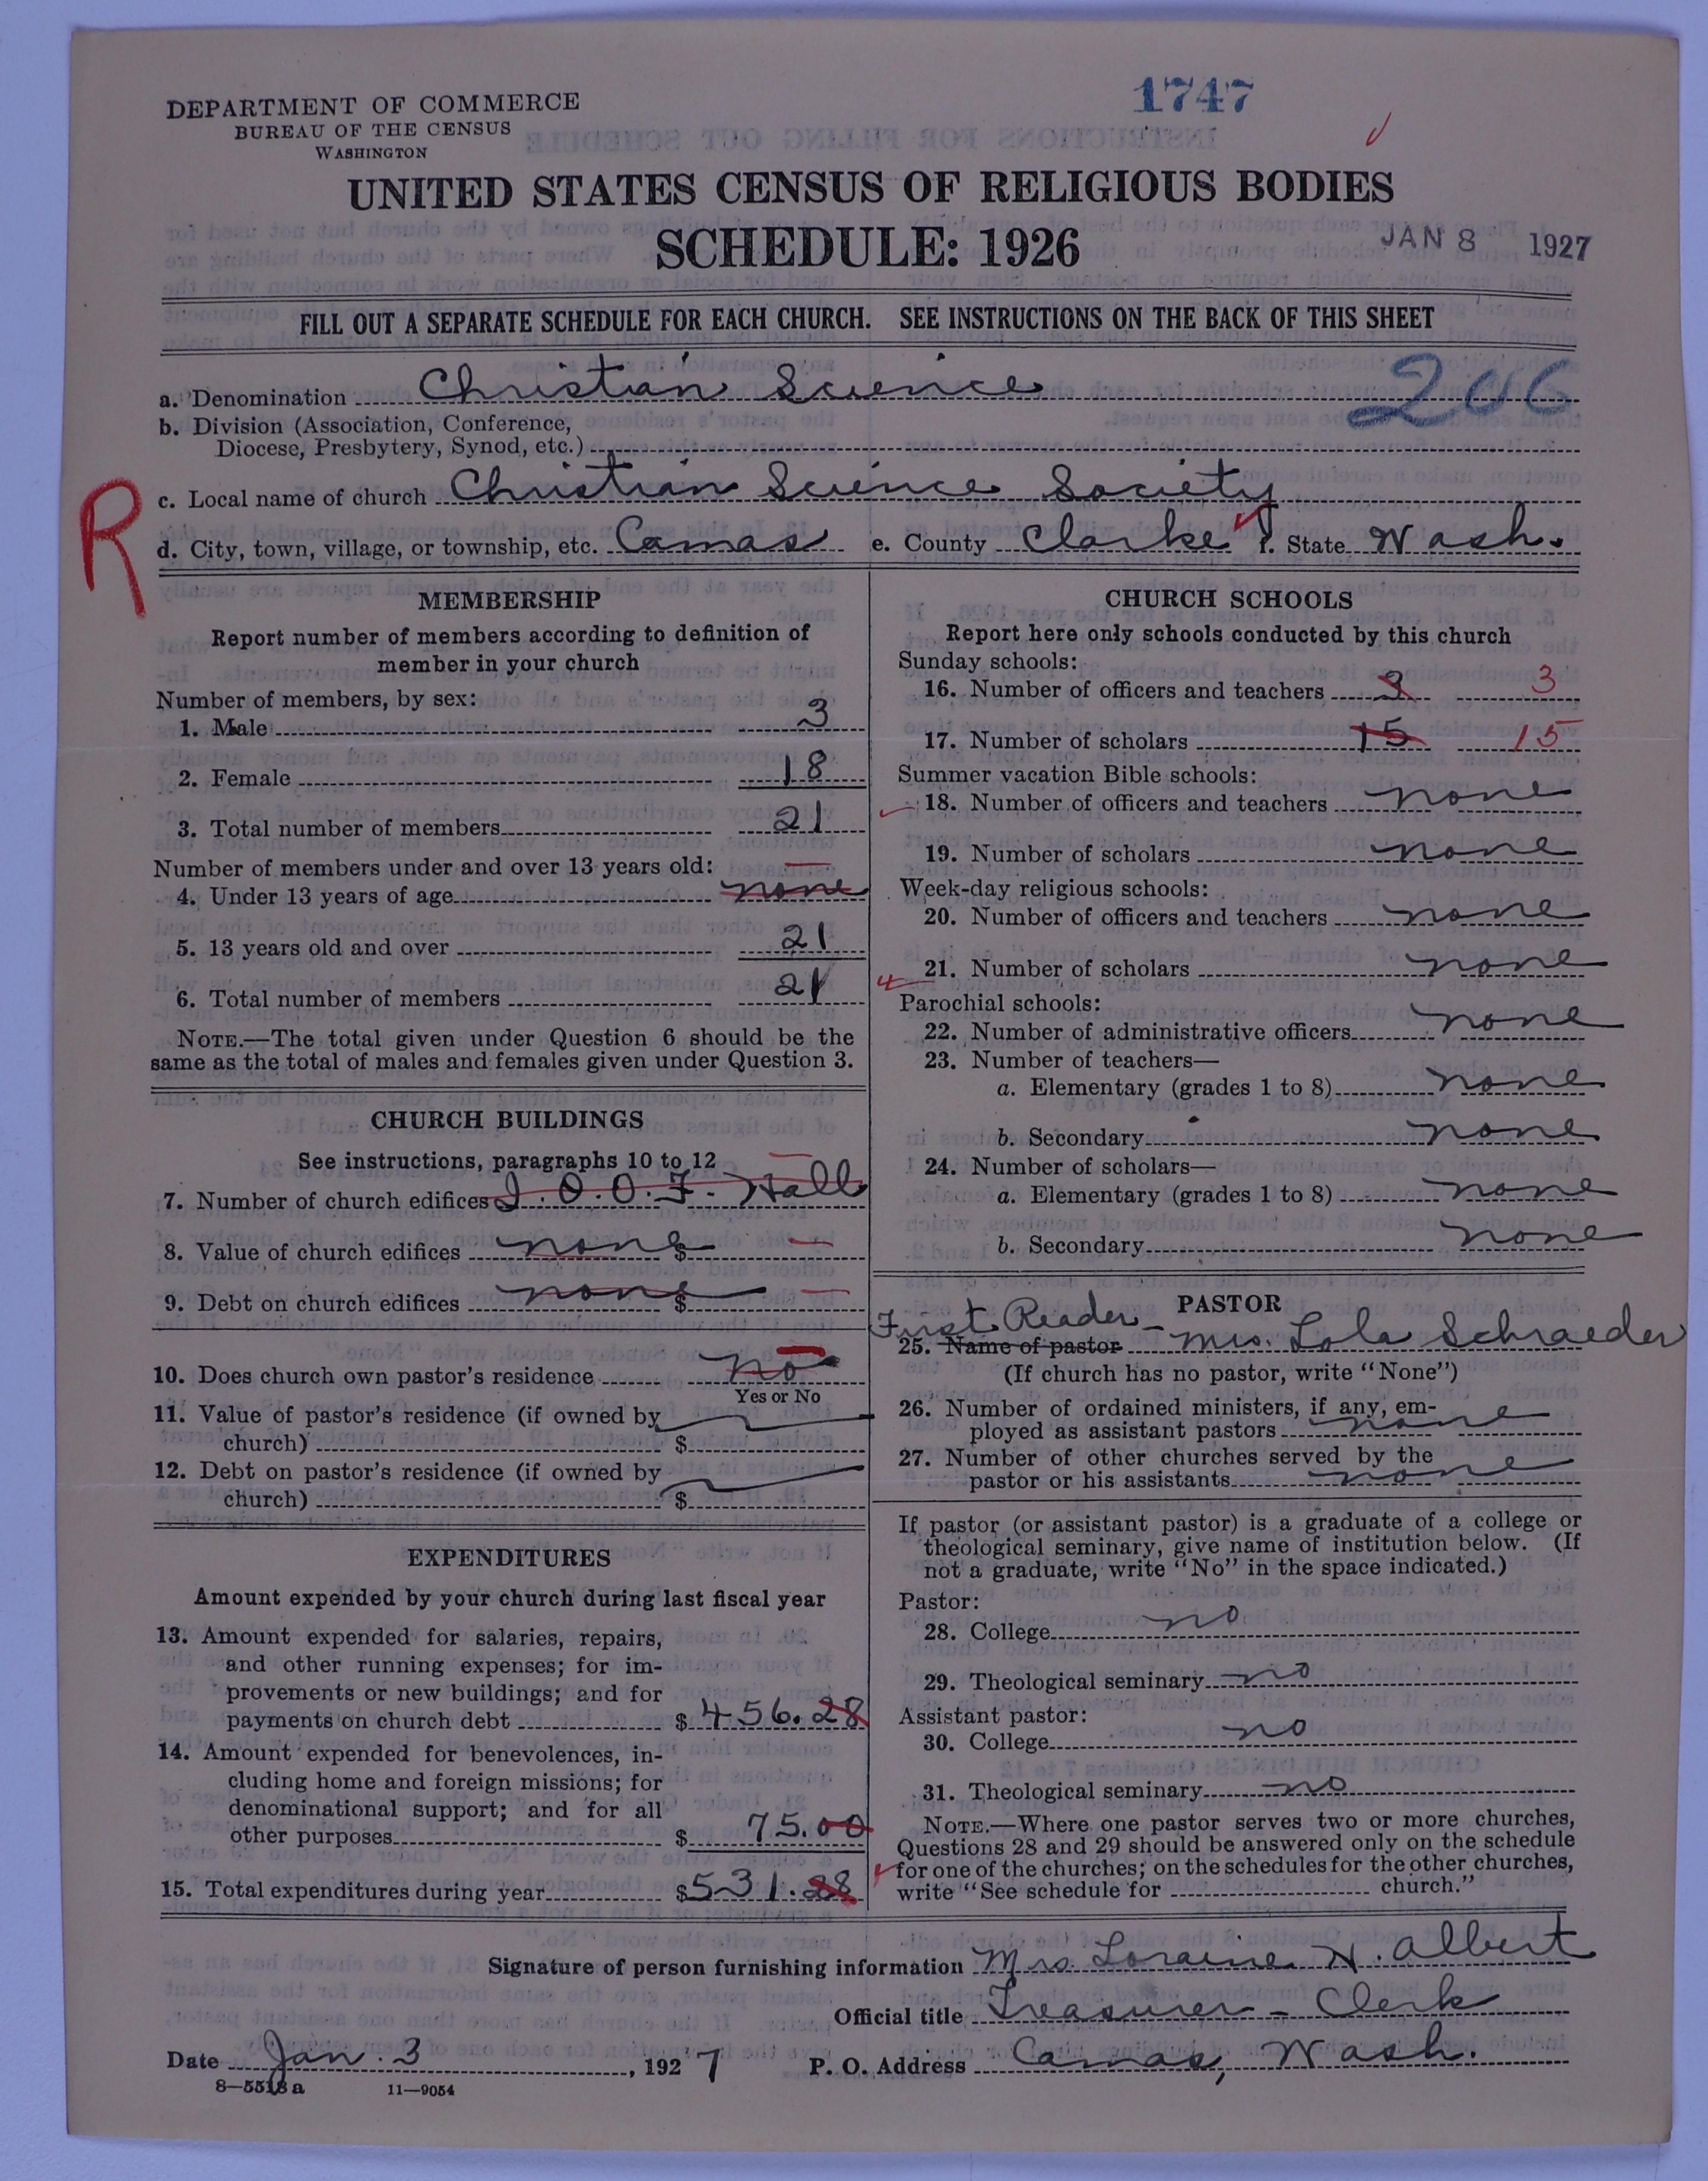 DEPARTMENT OF COMMERCE
BUREAU OF THE CENSUS
WASHINGTON
1747
UNITED STATES CENSUS OF RELIGIOUS BODIES
SCHEDULE: 1926
JAN 8 1927
FILL OUT A SEPARATE SCHEDULE FOR EACH CHURCH. SEE INSTRUCTIONS ON THE BACK OF THIS SHEET
a. Denomination Christian Science
206
b. Division (Association, Conference,
Diocese, Presbytery, Synod, etc.)
R
c. Local name of church Christian Science Society
d. City, town, village, or township, etc. Camas e. County Clarke f. State Wash.
MEMBERSHIP
Report number of members according to definition of
member in your church
Number of members, by sex:
1. Male 3
2. Female 18
3. Total number of members 21
Number of members under and over 13 years old:
4. Under 13 years of age none
5. 13 years old and over 21
6. Total number of members 21
NOTE.—The total given under Question 6 should be the
same as the total of males and females given under Question 3.
CHURCH BUILDINGS
See instructions, paragraphs 10 to 12
7. Number of church edifices I.O.O.F. Hall
8. Value of church edifices none $
9. Debt on church edifices none $
10. Does church own pastor's residence no
Yes or No
11. Value of pastor's residence (if owned by
church) $
12. Debt on pastor's residence (if owned by
church) $
EXPENDITURES
Amount expended by your church during last fiscal year
13. Amount expended for salaries, repairs,
and other running expenses; for im-
provements or new buildings; and for
payments on church debt $ 456.28
14. Amount expended for benevolences, in-
cluding home and foreign missions; for
denominational support; and for all
other purposes $ 75.00
15. Total expenditures during year $531.28
CHURCH SCHOOLS
Report here only schools conducted by this church
Sunday schools:
16. Number of officers and teachers 3 3
17. Number of scholars 15 15
Summer vacation Bible schools:
18. Number of officers and teachers none
19. Number of scholars none
Week-day religious schools:
20. Number of officers and teachers none
21. Number of scholars none
Parochial schools:
22. Number of administrative officers none
23. Number of teachers—
a. Elementary (grades 1 to 8) none
b. Secondary none
24. Number of scholars—
a. Elementary (grades 1 to 8) none
b. Secondary none
PASTOR
First Reader -
25. Name of pastor Mrs. Lola Schraeder
(If church has no pastor, write "None")
26. Number of ordained ministers, if any, em-
ployed as assistant pastors none
27. Number of other churches served by the
pastor or his assistants none
If pastor (or assistant pastor) is a graduate of a college or
theological seminary, give name of institution below. (If
not a graduate, write "No" in the space indicated.)
Pastor:
28. College no
29. Theological seminary no
Assistant pastor:
30. College no
31. Theological seminary no
NOTE.—Where one pastor serves two or more churches,
Questions 28 and 29 should be answered only on the schedule
for one of the churches; on the schedules for the other churches,
write "See schedule for church."
Signature of person furnishing information Mrs Loraine N. Albert
Official title Treasurer - Clerk
Date Jan. 3, 1927 P. O. Address Camas, Wash.
8—5518 a 11—9054